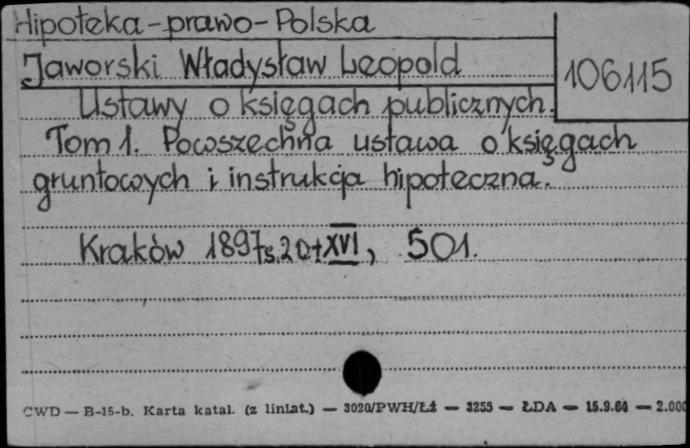 Hipoteka-prawo-Polska
Jaworski Władysław Leopold
106115
Ustawy o księgach publicznych.
Tom 1. Powszechna ustawa o księgach
gruntowych i instrukcja hipoteczna.
Kraków 1897 s. 20+XVI, 501.
CWD — B-15-b. Karta katal. (z liniat.) — 3020/PWH/Łź — 3255 — ŁDA — 15.9.64 — 2.000